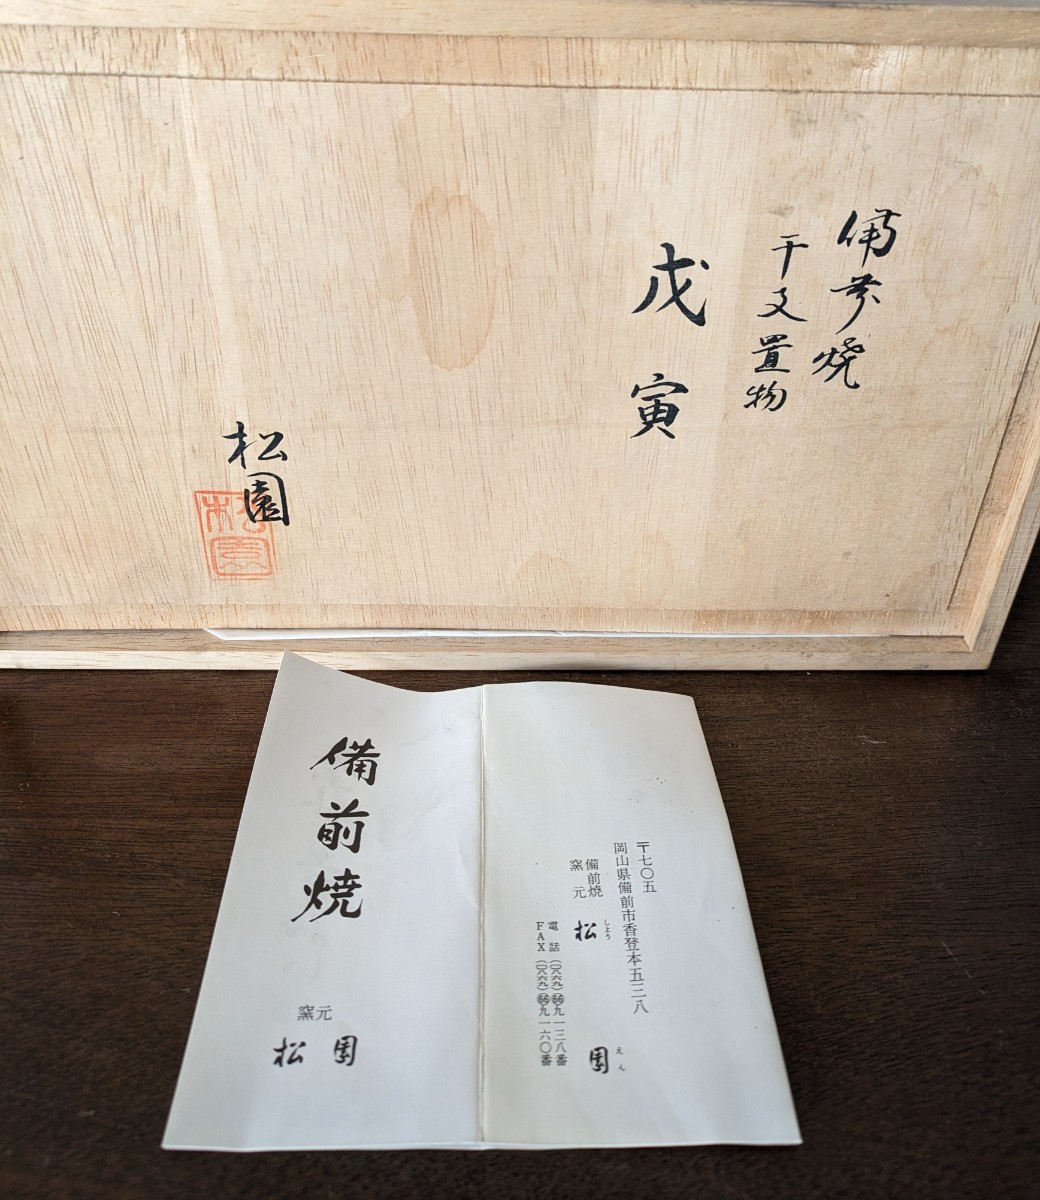 備前焼
干支置物
戊寅
松園
松園
備前焼
窯元
松園
〒七〇五
岡山県備前市香登本五三八
備前焼
窯元
松園
しよう
えん
電話(〇八六九)66九一三八番
FAX(〇八六九)66九一六〇番